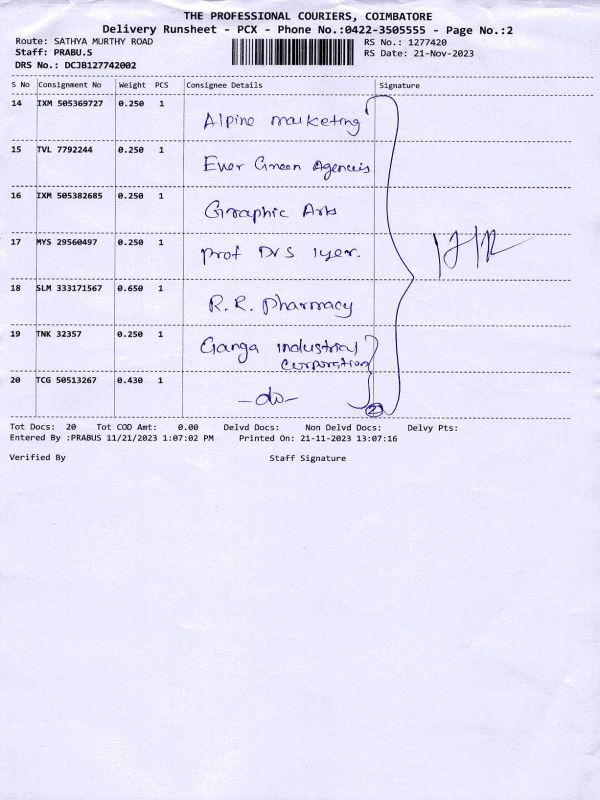 THE PROFESSIONAL COURIERS, COIMBATORE
Delivery Runsheet - PCX - Phone No.:0422-3505555 - Page No.:2
Route: SATHYA MURTHY ROAD RS No.: 1277420
Staff: PRABU.S RS Date: 21-Nov-2023
DRS No.: DCJB127742002
S No Consignment No Weight PCS Consignee Details Signature
14 IXM 505369727 0.250 1
Alpine marketing
15 TVL 7792244 0.250 1
Ever Green Agencies
16 IXM 505382685 0.250 1
Graphic Arts
17 MYS 29560497 0.250 1
Prof Drs Iyer.
18 SLM 333171567 0.650 1
R.R. Pharmacy
19 TNK 32357 0.250 1
Ganga industrial
corporation
20 TCG 50513267 0.430 1
-do- 2
Tot Docs: 20 Tot COD Amt: 0.00 Delvd Docs: Non Delvd Docs: Delvy Pts:
Entered By :PRABUS 11/21/2023 1:07:02 PM Printed On: 21-11-2023 13:07:16
Verified By Staff Signature